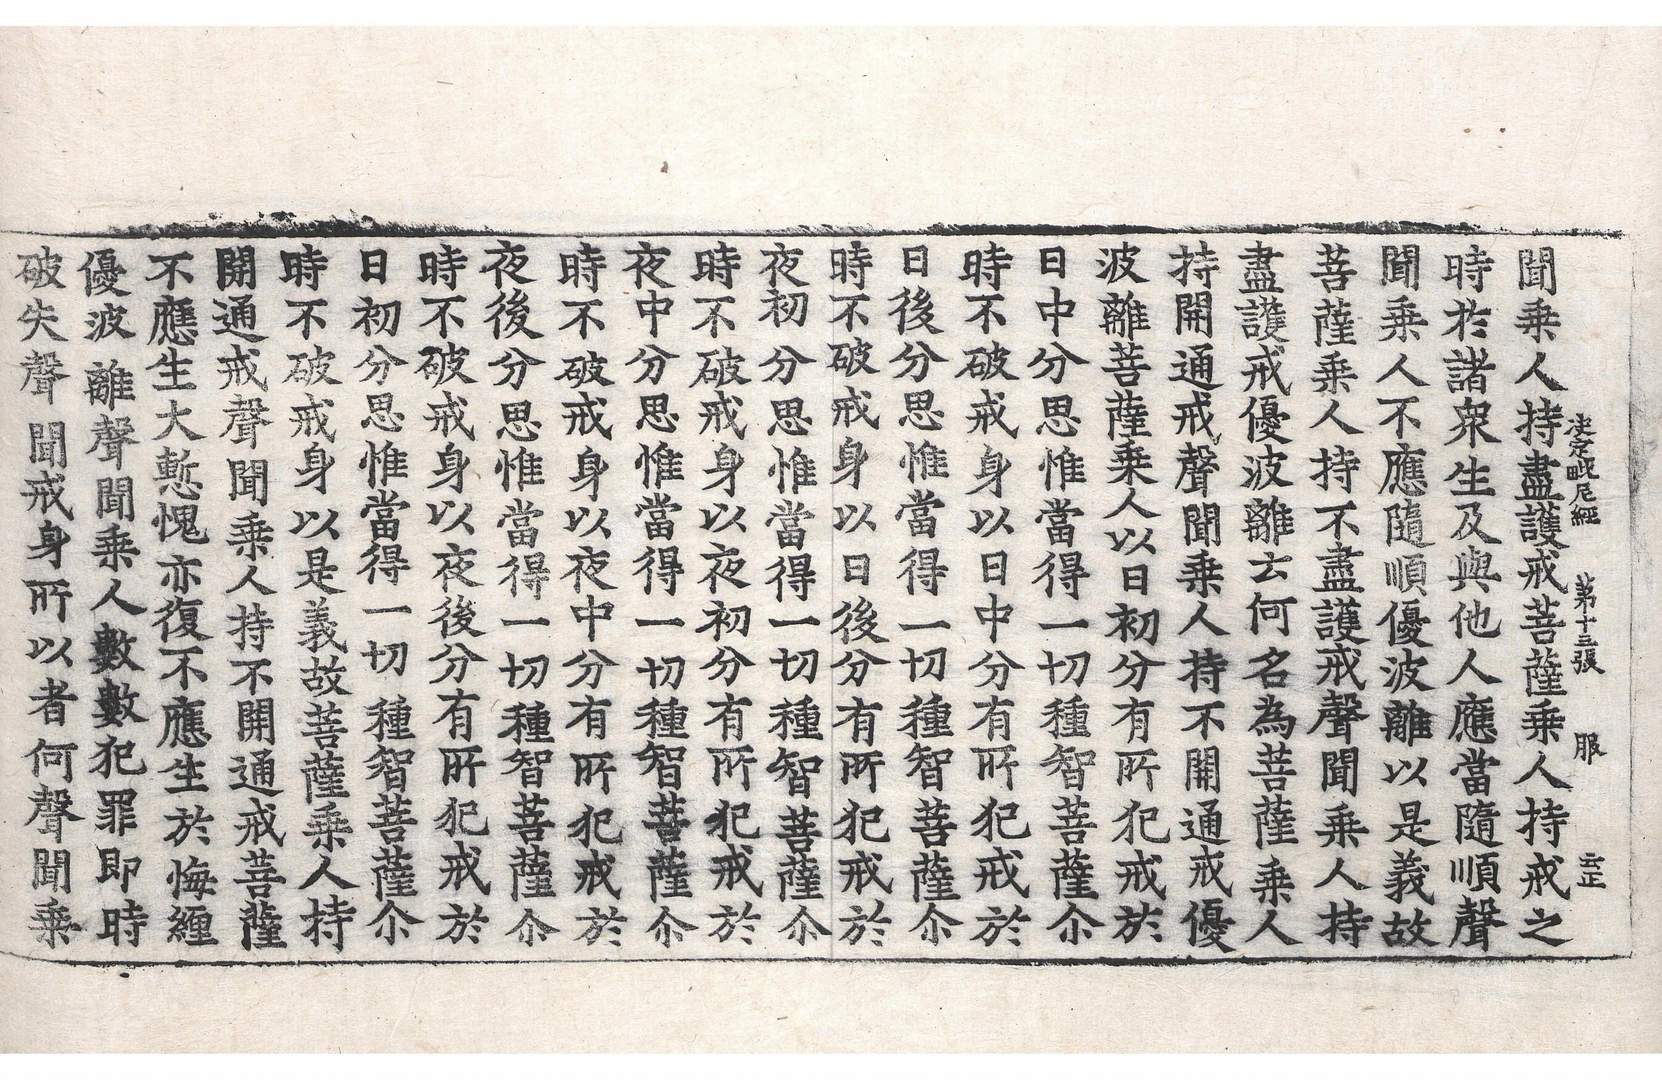 决定毗尼經 第十三張 服
聞乗人持盡護戒菩薩乗人持戒之
時於諸衆生及與他人應當隨順聲
聞乗人不應隨順優波離以是義故
菩薩乗人持不盡護戒聲聞乗人持
盡護戒優波離云何名為菩薩乗人
持開通戒聲聞乗人持不開通戒優
波離菩薩乗人以日初分有所犯戒於
日中分思惟當得一切種智菩薩尒
時不破戒身以日中分有所犯戒於
日後分思惟當得一切種智菩薩尒
時不破戒身以日後分有所犯戒於
夜初分思惟當得一切種智菩薩尒
時不破戒身以夜初分有所犯戒於
夜中分思惟當得一切種智菩薩尒
時不破戒身以夜中分有所犯戒於
夜後分思惟當得一切種智菩薩尒
時不破戒身以夜後分有所犯戒於
日初分思惟當得一切種智菩薩尒
時不破戒身以是義故菩薩乗人持
開通戒聲聞乗人持不開通戒菩薩
不應生大慙愧亦復不應生於悔纏
優波離聲聞乗人數數犯罪即時
破失聲聞戒身所以者何聲聞乗